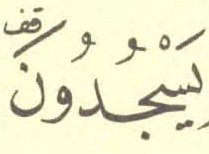 يَسْجُدُونَ قف